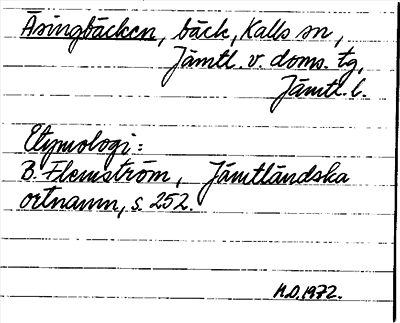 Åsingbäcken, bäck, Kalls sn,
Jämtl. v. doms. tg,
Jämtl. l.
Etymologi:
B. Flemström, Jämtländska
ortnamn, s. 252.
M.O. 1972.